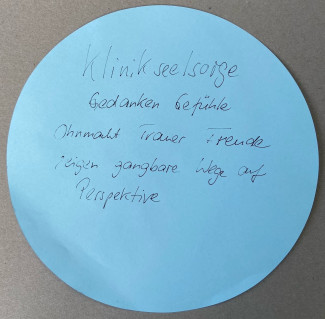 Klinikseelsorge
Gedanken Gefühle
Ohnmacht Trauer Freude
zeigen gangbare Wege auf
Perspektive